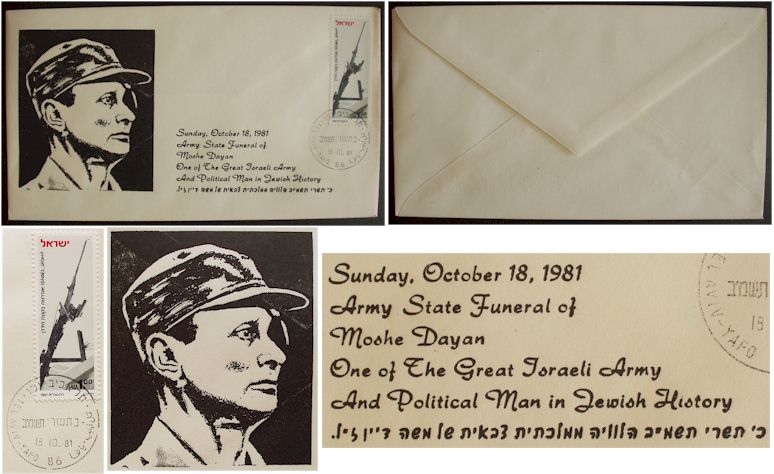 ישראל
Sunday, October 18, 1981
Army State Funeral of
Moshe Dayan
One of The Great Israeli Army
And Political Man in Jewish History
כ' תשרי תשמ״ב הלוויה ממלכתית צבאית של משה דיין ז״ל.
18 10. 81
86
ישראל
1.00
TEL AVIV-YAFO
18 10. 81
86
Sunday, October 18, 1981
Army State Funeral of
Moshe Dayan
One of The Great Israeli Army
And Political Man in Jewish History
כ' תשרי תשמ״ב הלוויה ממלכתית צבאית של משה דיין ז״ל.
תשמ״ב
18
TEL AVIV-YAFO